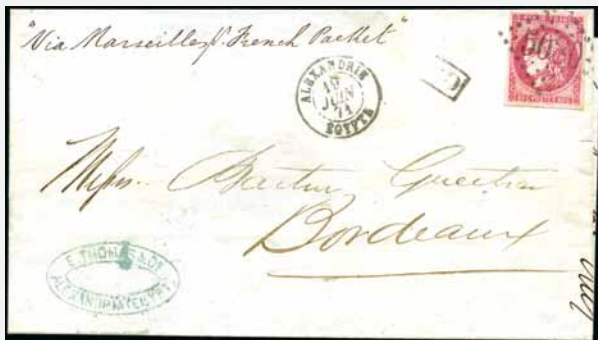 "Via Marseilles p. French Packet"
ALEXANDRIE
19
JUIN
71
EGYPTE
PD
50
Messrs. Barton Guestier
Bordeaux
E. THOMASSON
ALEXANDRIA EGYPT